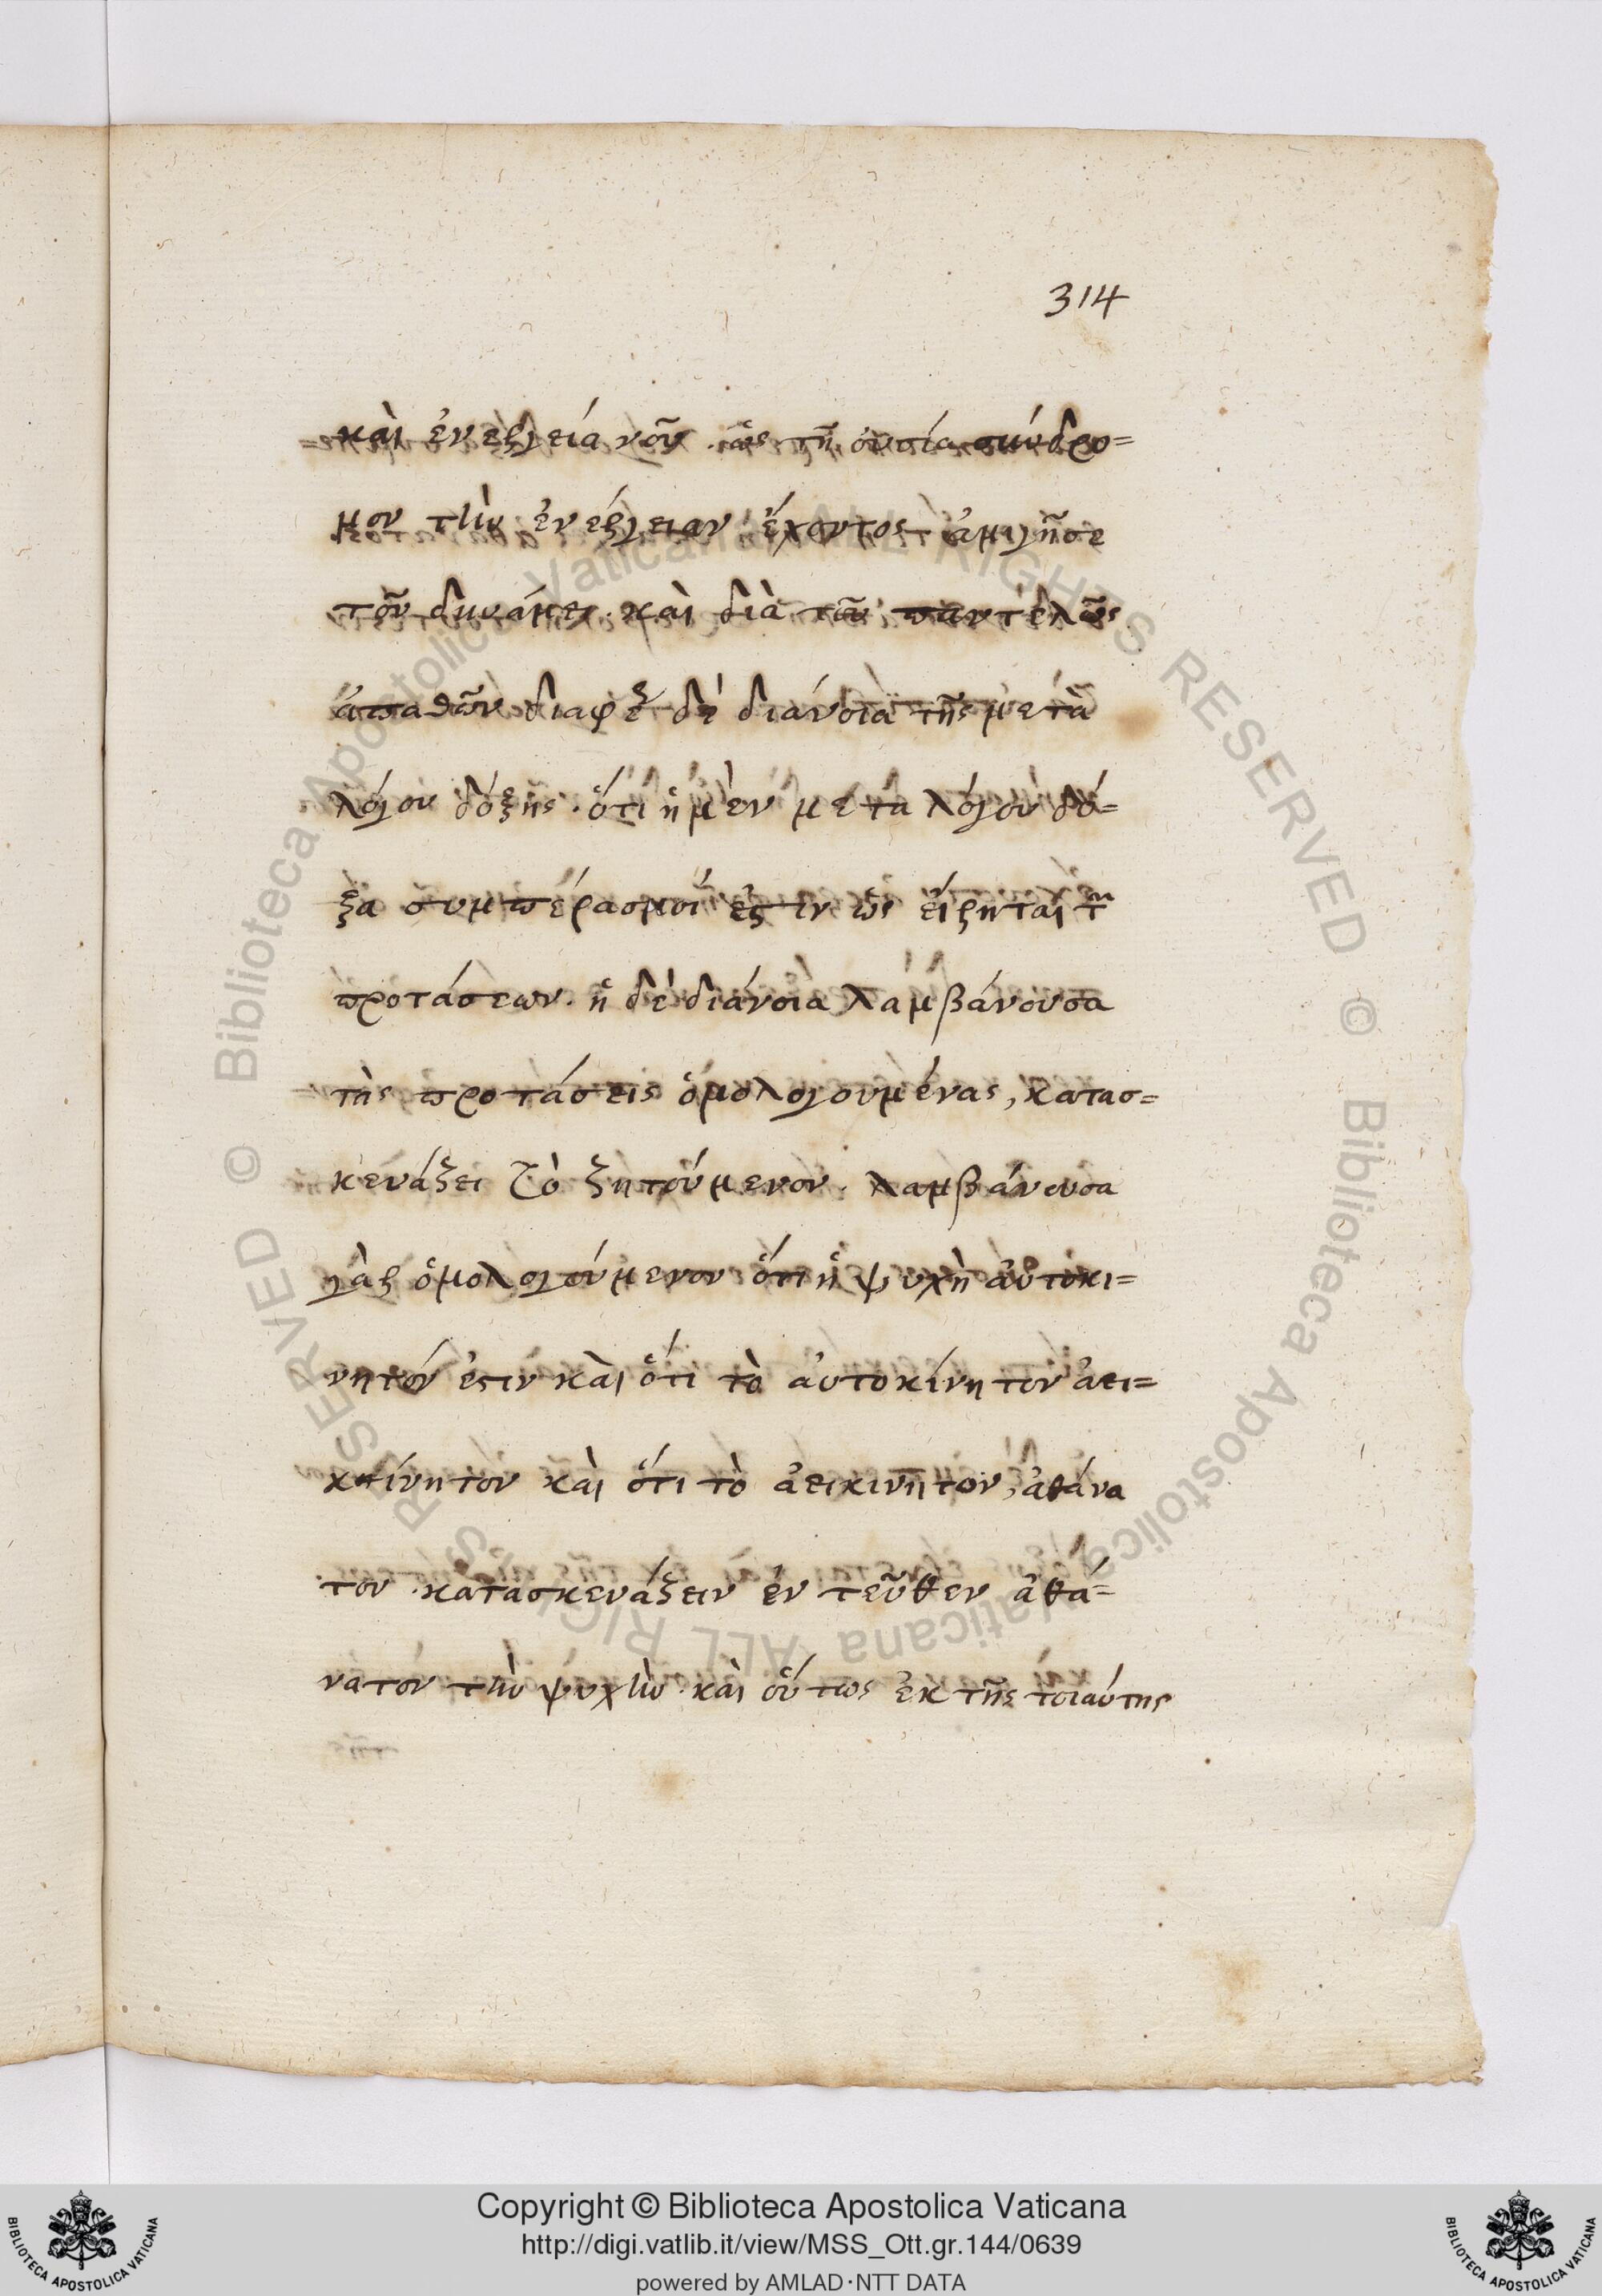 314
καὶ ἐνεργεία νοῦ. ὡς τῇ οὐσία σύνδρο=
μον τὴν ἐνέργειαν ἔχοντος ἀμιγῆσε
τοῦ δυνάμει. καὶ διὰ τοῦ παντελῶς
ἀπαθῶν διαφέρει δὲ διάνοια τῆς μετὰ
λόγου δόξης. ὅτι ἡ μὲν μετα λόγου δό=
ξα συμπέρασμοί ἐστιν ὡς εἴρηται τῶν
προτάσεων. ἡ δὲ διάνοια λαμβάνουσα
τὴς προτάσεις ὁμολογουμένας, κατασ=
κευάζει τὸ ζητούμενον. λαμβάνουσα
γὰρ ὁμολογούμενον ὅτι ἡ ψυχὴ αὐτοκι=
νητόν ἐστιν καὶ ὅτι τὸ αὐτοκίνητον ἀει=
κίνητον καὶ ὅτι τὸ ἀεικινητον, ἀθάνα
τον. κατασκευάζειν ἐν τεῦθεν ἀθά=
νατον τὴν ψυχὴν. καὶ οὕτως ἐκ τῆς τοιαύτης
Copyright © Biblioteca Apostolica Vaticana
http://digi.vatlib.it/view/MSS_Ott.gr.144/0639
powered by AMLAD·NTT DATA
BIBLIOTECA APOSTOLICA VATICANA
BIBLIOTECA APOSTOLICA VATICANA
© Biblioteca Apostolica Vaticana ALL RIGHTS RESERVED © Biblioteca Apostolica Vaticana ALL RIGHTS RESERVED